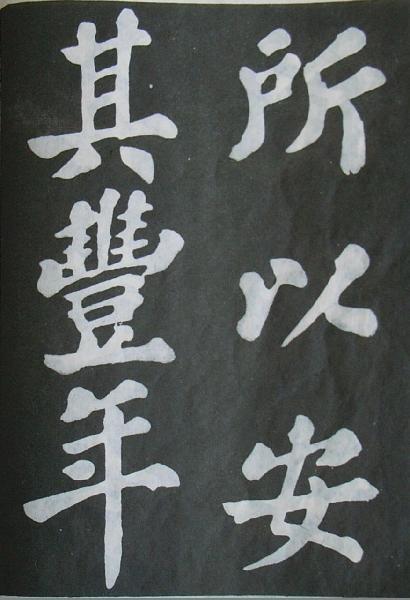 所以安
其豐年